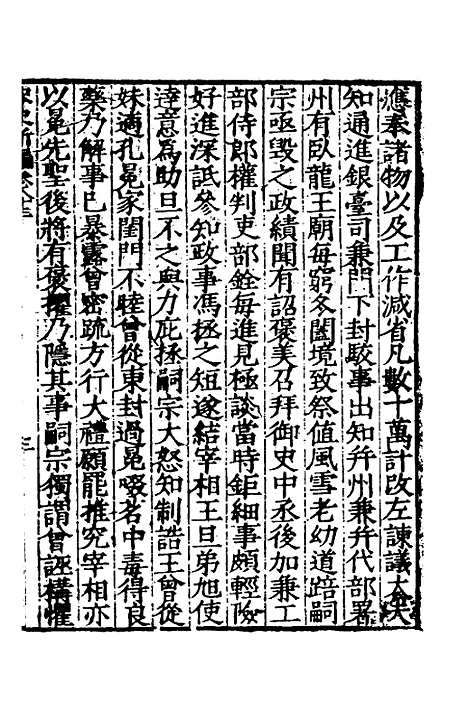 應奉諸物以及工作減省凡數十萬計改左諫議大夫
知通進銀臺司兼門下封駮事出知幷州兼幷代部署
州有臥龍王廟每窮冬闔境致祭值風雪老幼道踣嗣
宗亟毀之政績聞有詔褒美召拜御史中丞後加兼工
部侍郎權判吏部銓每進見極談當時鉅細事頗輕險
好進深詆參知政事馮拯之短遂結宰相王旦弟旭使
達意爲助旦不之與力庇拯嗣宗大怒知制誥王曾從
妹適孔冕家閨門不睦曾從東封過冕啜茗中毒得良
藥乃解事已暴露曾密疏方行大禮願罷推究宰相亦
以冕先聖後將有褒擢乃隱其事嗣宗獨謂曾誣構懼